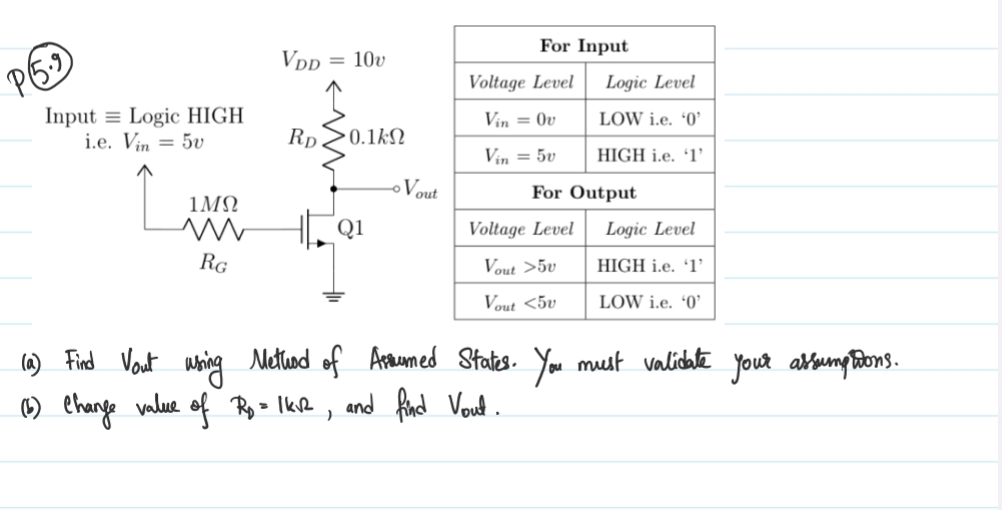 P5.9
V_DD = 10v
Input ≡ Logic HIGH
i.e. V_in = 5v
R_D
0.1kΩ
V_out
1MΩ
Q1
R_G
For Input
Voltage Level Logic Level
V_in = 0v LOW i.e. '0'
V_in = 5v HIGH i.e. '1'
For Output
Voltage Level Logic Level
V_out >5v HIGH i.e. '1'
V_out <5v LOW i.e. '0'
(a) Find Vout using Method of Assumed States. You must validate your assumptions.
(b) Change value of R_D = 1kΩ, and find Vout.